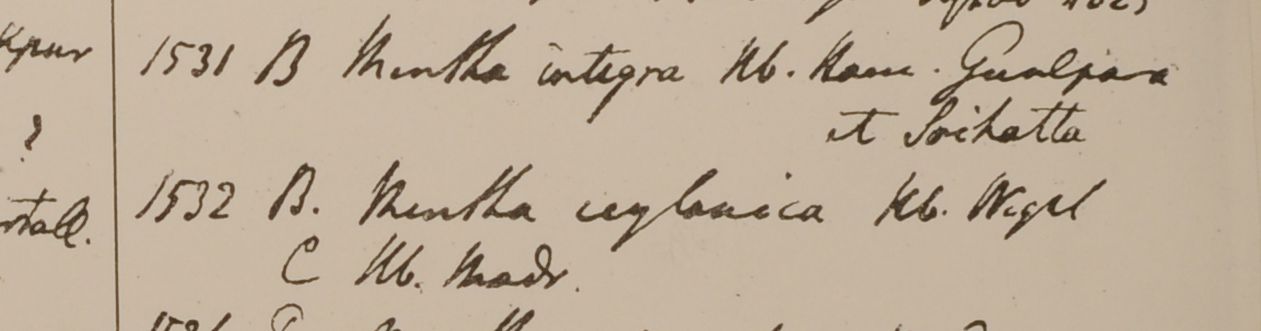 kpur
1531 B Mentha integra Hb. Ham. Gualpara
?
et Srihatta
1532 B. Mentha ceylanica Hb. Wight
tall.
C Hb. Madr.